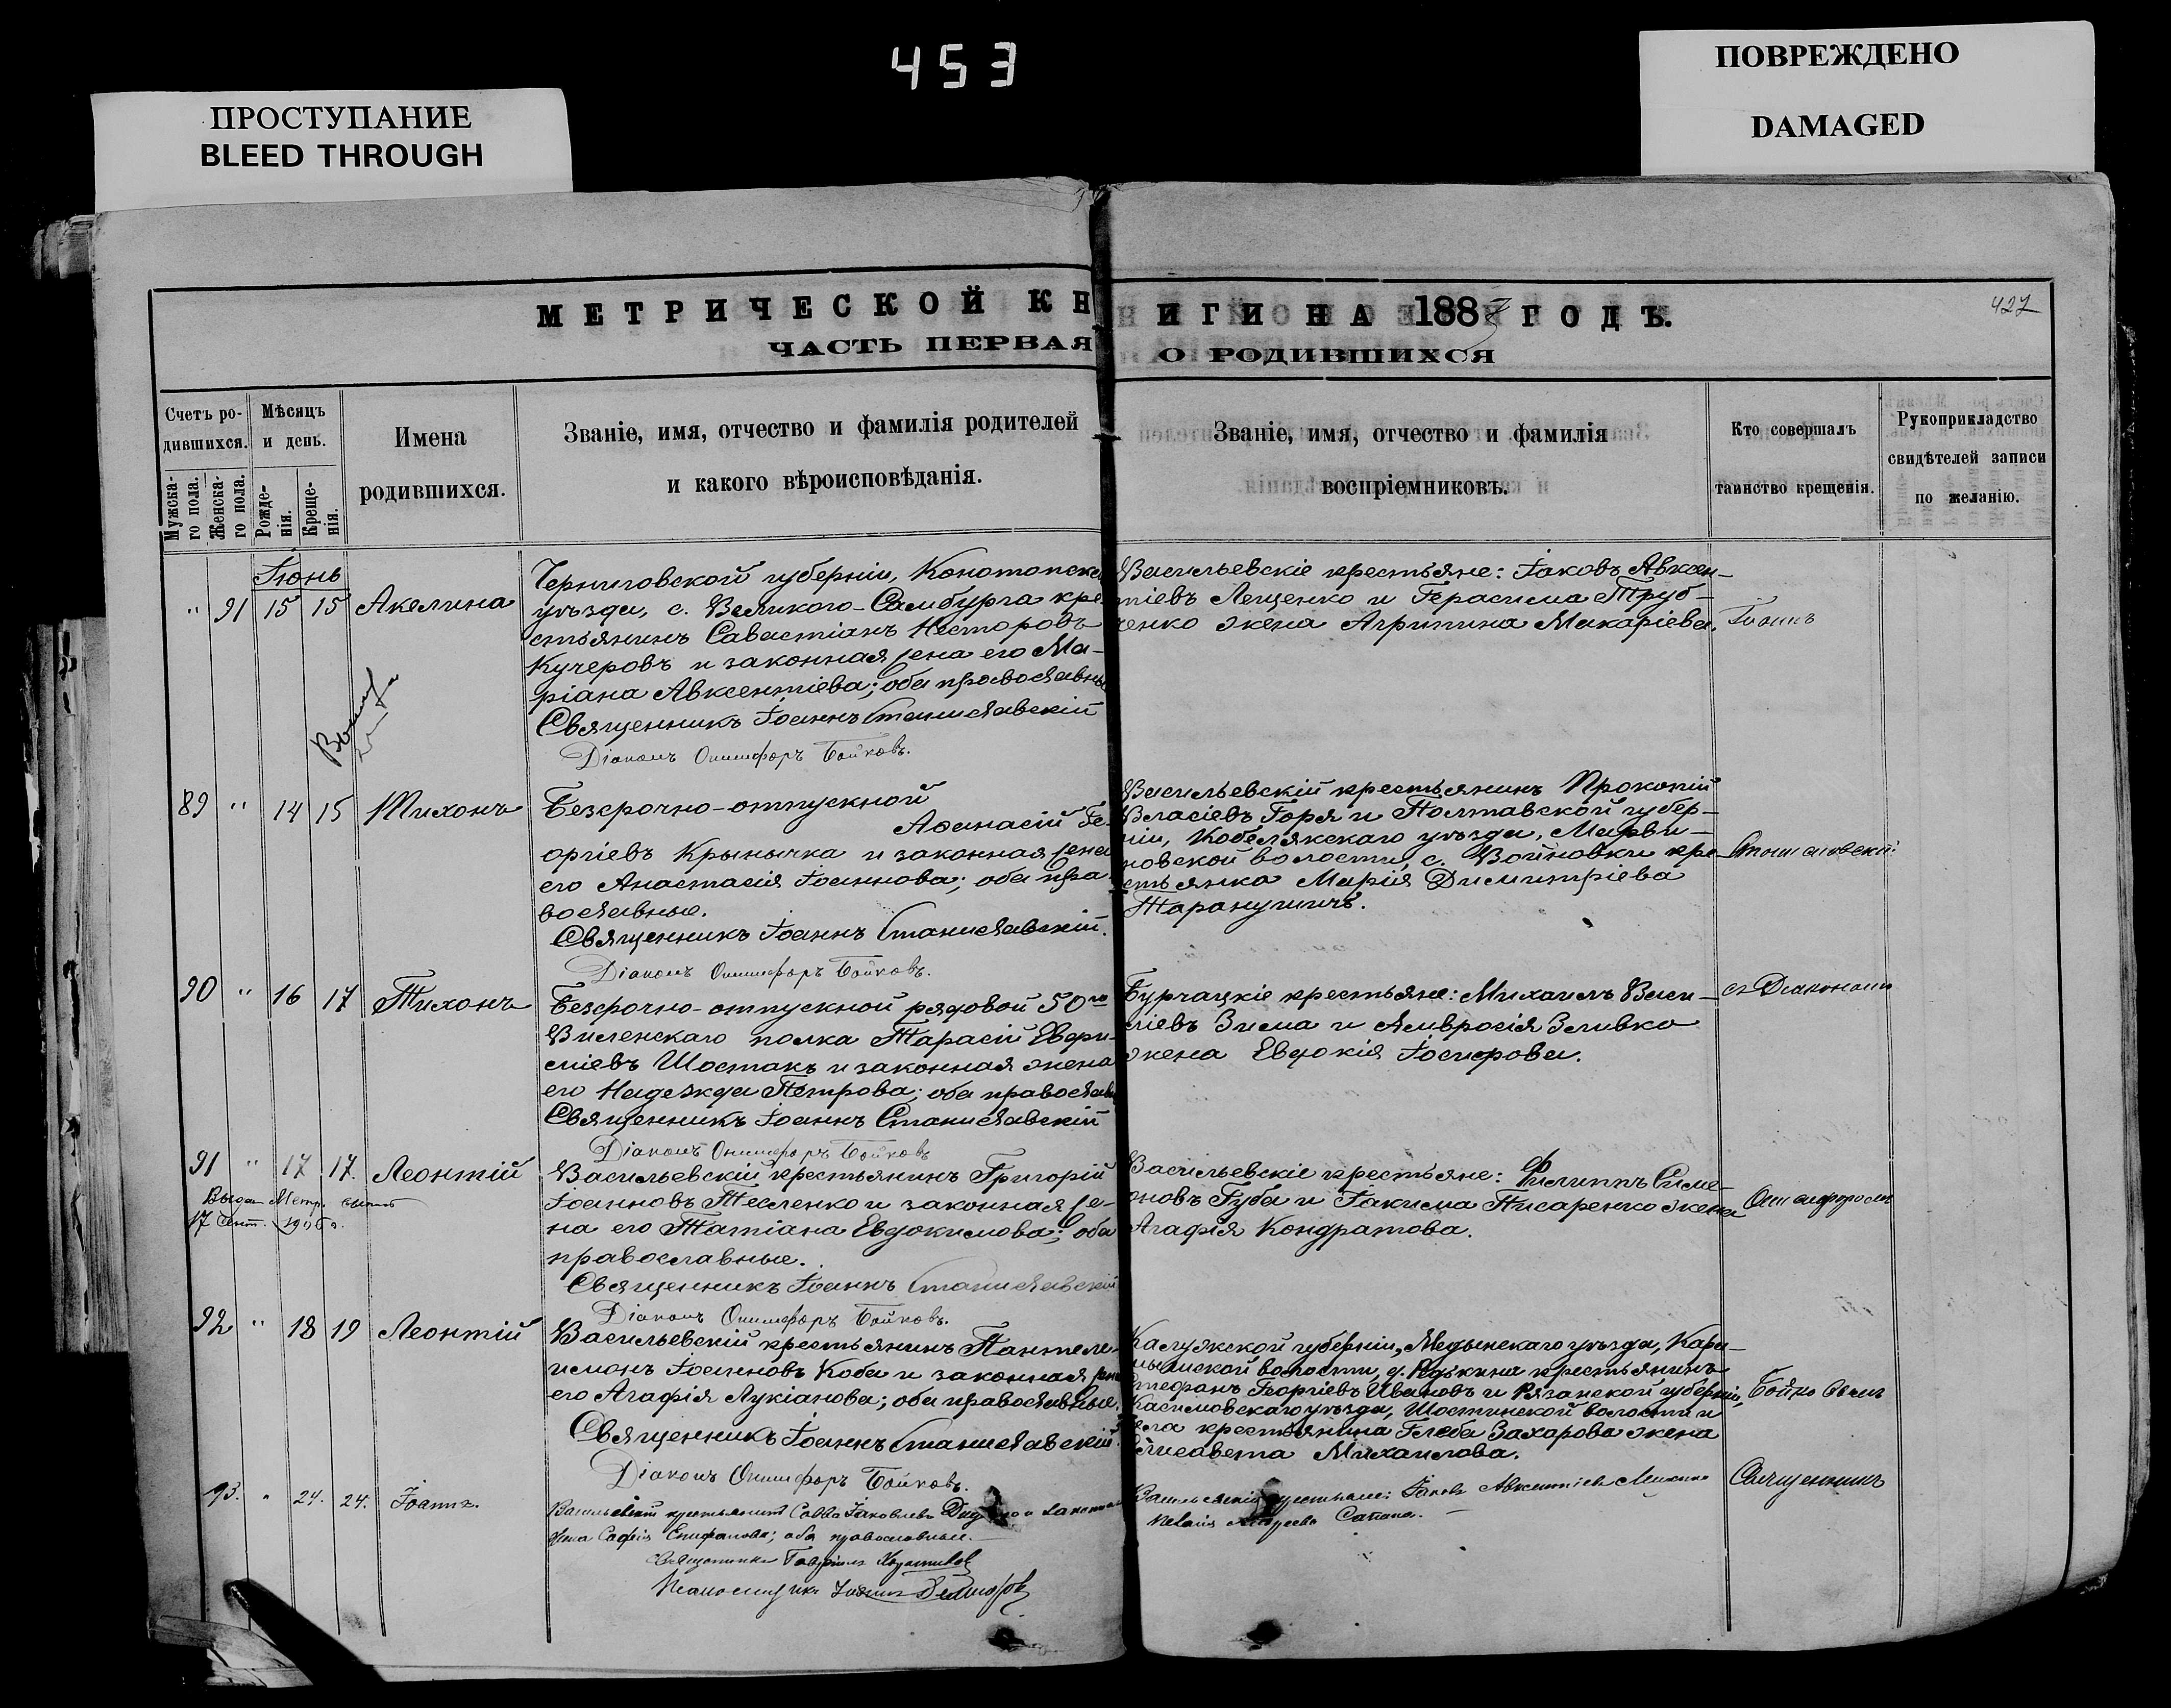 453
ПРОСТУПАНИЕ
BLEED THROUGH
ПОВРЕЖДЕНО
DAMAGED
МЕТРИЧЕСКОЙ КНИГИ НА 1887 ГОДЪ.
427
ЧАСТЬ ПЕРВАЯ О РОДИВШИХСЯ
Счетъ родившихся.
Мужска-го пола.
Женска-го пола.
Мѣсяцъ и день.
Рожде-нія.
Креще-нія.
Имена родившихся.
Званіе, имя, отчество и фамилія родителей
и какого вѣроисповѣданія.
Званіе, имя, отчество и фамилія
воспріемниковъ.
Кто совершалъ
таинство крещенія.
Рукоприкладство
свидѣтелей записи
по желанію.
Іюнь
" 91 15 15 Акелина
Черниговской губерніи, Конотопска
уѣзда, с. Великаго-Самбурга кре-
стьянинъ Савастіанъ Несторовъ
Кучеровъ и законная жена его Ма-
ріана Авксентіева; оба православны
Священникъ Іоаннъ Станиславскій
Діаконъ Онисифоръ Бойковъ.
Васильевскіе крестьяне: Іаковъ Авксен-
тіевъ Лещенко и Герасима Труб-
ченко жена Агрипина Макаріева.
Іоаннъ
89 " 14 15 Тихонъ
Безсрочно-отпускной
Аѳанасій Ге-
оргіевъ Крыничка и законная жена
его Анастасія Іоаннова; оба пра-
вославные.
Священникъ Іоаннъ Станиславскій.
Діаконъ Онисифоръ Бойковъ.
Васильевскій крестьянинъ Прокопій
Власіевъ Горя и Полтавской губер-
ніи, Кобелякскаго уѣзда,
новской волости, с. Войновки кре-
стьянка Марія Димитріева
Станиславскій
90 " 16 17 Тихонъ
Безсрочно-отпускной рядовой 50го
Виленскаго полка Тарасій Евфи-
міевъ Шостакъ и законная жена
его Надежда Петрова; оба православ
Священникъ Іоаннъ Станиславскій
Діаконъ Онисифоръ Бойковъ
Бурчацкіе крестьяне: Михаилъ Васи-
ліевъ Зима и Амвросія Зливко
жена Евдокія Іосифова.
съ Діакономъ
91 " 17 17. Леонтій
17 Сент. 1906 г.
Васильевскій крестьянинъ Григорій
Іоанновъ Тесленко и законная же-
на его Татіана Евдокимова; оба
православные.
Священникъ Іоаннъ Станиславскій
Діаконъ Онисифоръ Бойковъ.
Васильевскіе крестьяне: Филиппъ Симе-
оновъ Губа и Іакима Писаренко жена
Агафія Кондратова.
Онисифоромъ
92 " 18 19 Леонтій
Васильевскій крестьянинъ Пантеле-
имонъ Іоанновъ Коба и законная жена
его Агафія Лукіанова; оба православные.
Священникъ Іоаннъ Станиславскій.
Діаконъ Онисифоръ Бойковъ.
Калужской губерніи, Медынскаго уѣзда,
волости, д. Редькина крестьянинъ
Стефанъ Георгіевъ Ивановъ и Рязанской губерніи,
Касимовскаго уѣзда, волости и
села крестьянина Глеба Захарова жена
Елисавета Михаилова.
Бойковымъ
93. " 24. 24. Іоаннъ.
Васильевскій крестьянинъ Савва Іаковлевъ и законная
жена Софія Епифанова; оба православные.
Священникъ Гавріилъ
Псаломщикъ Іоаннъ
Васильевскіе крестьяне: Іаковъ Авксентіевъ
Священникъ